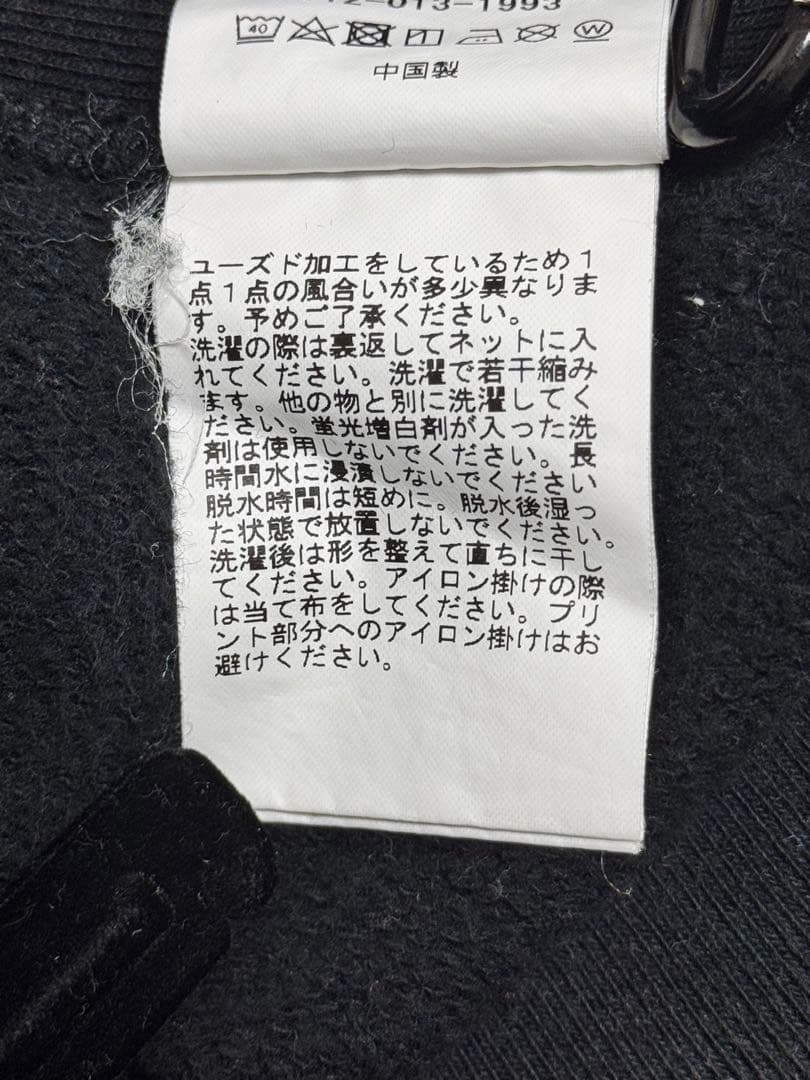 12-013-1993
40
W
中国製
ユーズド加工をしているため1
点1点の風合いが多少異なりま
す。予めご了承ください。
洗濯の際は裏返してネットに入
れてください。洗濯で若干縮み
ます。他の物と別に洗濯してく
ださい。蛍光増白剤が入った洗
剤は使用しないでください。長
時間水に浸漬しないでください
脱水時間は短めに。脱水後湿っ
た状態で放置しないでください。
洗濯後は形を整えて直ちに干し
てください。アイロン掛けの際
は当て布をしてください。プリ
ント部分へのアイロン掛けはお
避けください。